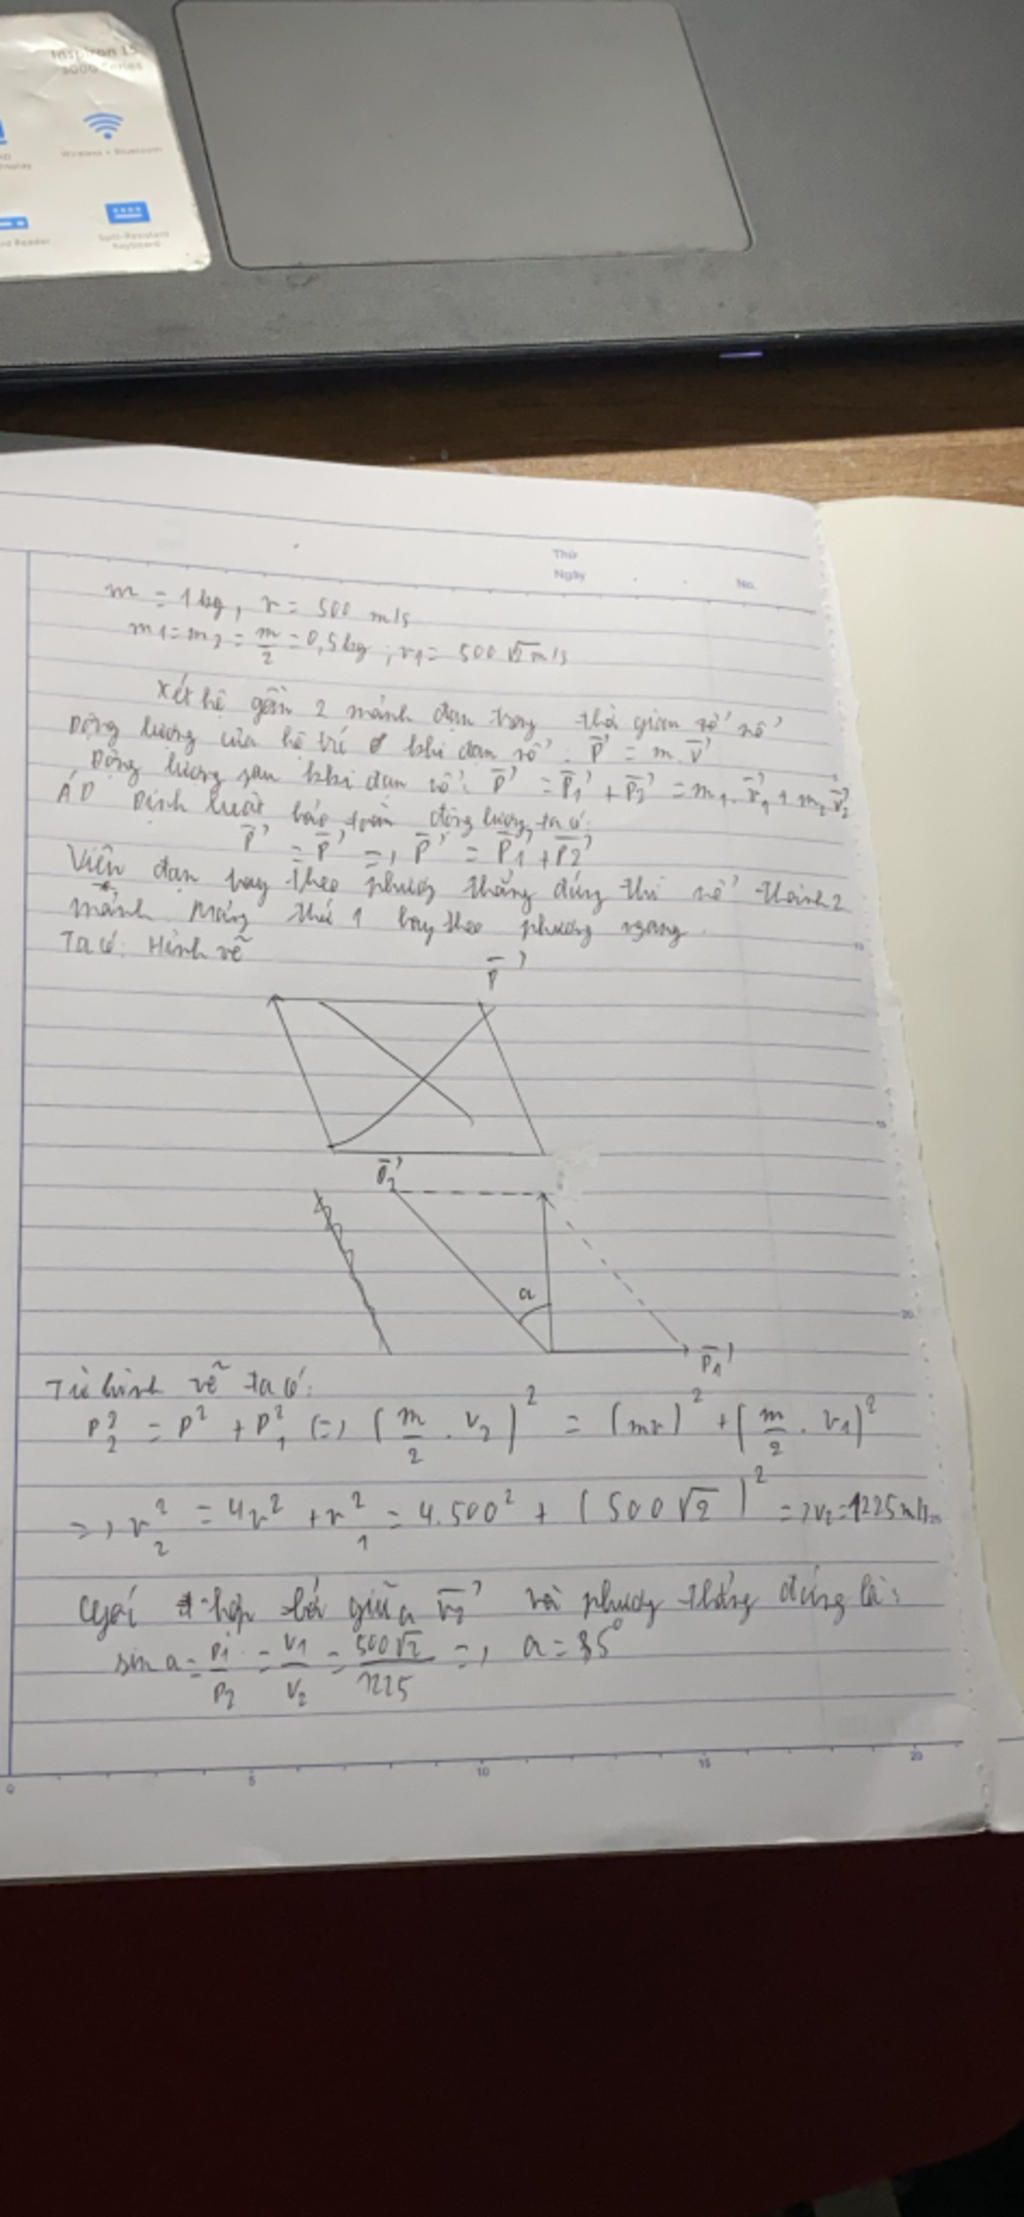 Inspiron 15
3000 Series
Wireless + Bluetooth
Spill-Resistant
Keyboard
Thứ
Ngày
No.
m = 1 kg, v = 500 m/s
m1 = m2 = m/2 = 0,5 kg ; v1 = 500 √2 m/s
Xét hệ gồm 2 mảnh đạn trong thời gian nổ
Động lượng của hệ trc khi đạn nổ: p⃗ = m.v⃗
Động lượng sau khi đạn nổ: p⃗' = p⃗1 + p⃗2 = m1.v⃗1 + m2.v⃗2
ÁD Định luật bảo toàn động lượng, ta có:
p⃗ = p⃗' =, p⃗ = p⃗1 + p⃗2
Viên đạn bay theo phương thẳng đứng thì nổ thành 2
mảnh thứ 1 bay theo phương ngang.
Ta có: Hình vẽ
p⃗
p⃗2
a
p⃗1
Từ hình vẽ ta có:
p2² = p² + p1² (=) (m/2 . v2)² = (mv)² + (m/2 . v1)²
=, v2² = 4v² + v1² = 4.500² + (500√2)² =, v2 = 1225 m/s
hợp bởi giữa v⃗2 và phương thẳng đứng là:
sin a = p1/p2 = v1/v2 = 500√2/1225 =, a = 35°
0 5 10 15 20